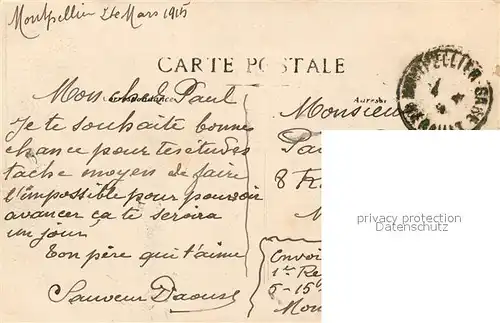 Montpellier 2 de Mars 1915
CARTE POSTALE
Correspondance
Adresse
MONTPELLIER GARE
HERAULT
Mon ch. E. Paul
Je te souhaite bonne
chance pour tes études
tache moyen de faire
l'impossible pour pouvoir
avancer ça te servira
un jour.
Ton père qui t'aime
Sauveur Daouse
Monsieur
8 Fr.
Envoi
1er Re
5-15e
Mon
privacy protection
Datenschutz